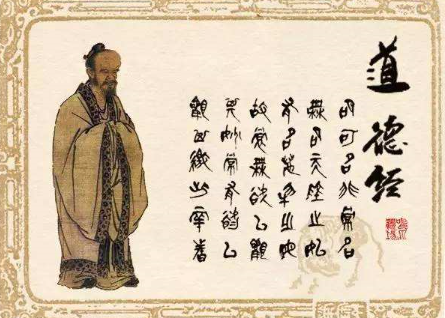 道德經
名可名非常名
無名天地之始
有名萬物之母
故常無欲以觀
其妙常有欲以
觀其徼此兩者